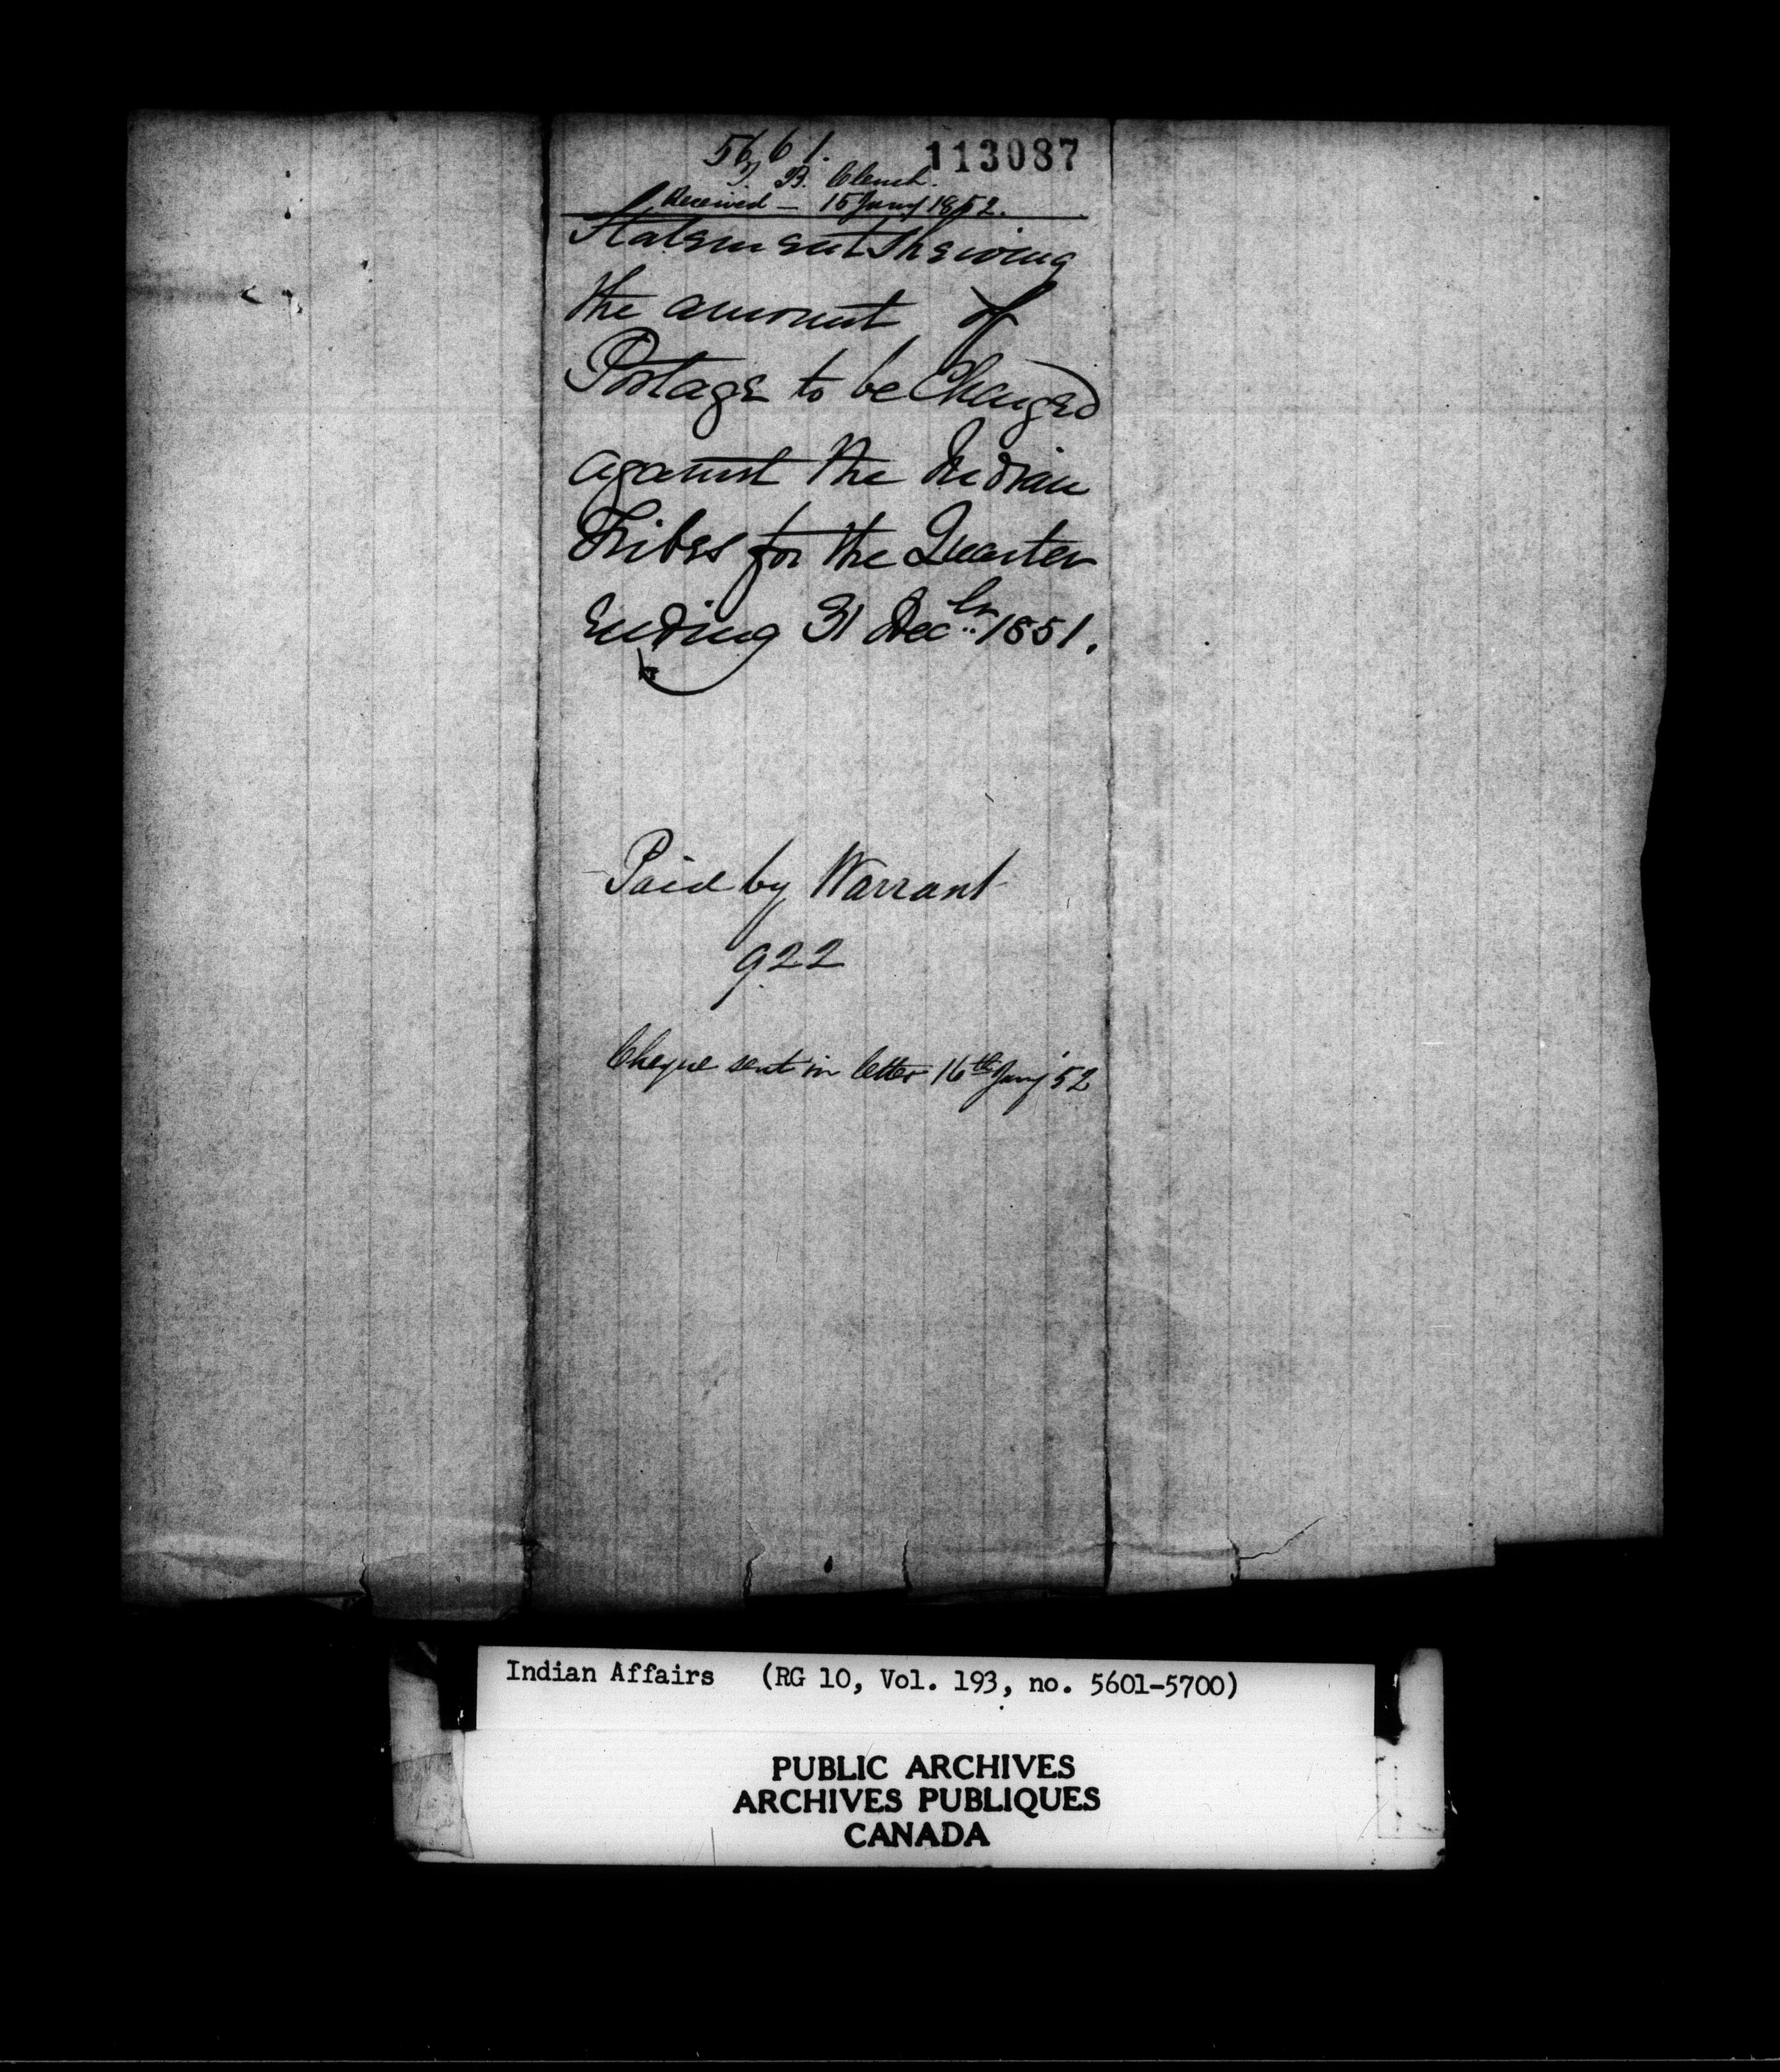 5661. 113087
J. B. Clench.
Received - 15 Jany 1852.
Statement Shewing
the amount of
Postage to be Charged
against the Indian
Tribes for the Quarter
Ending 31 Decbr 1851.
Paid by Warrant
922
Cheque sent in letter 16th Jany '52
Indian Affairs (RG 10, Vol. 193, no. 5601-5700)
PUBLIC ARCHIVES
ARCHIVES PUBLIQUES
CANADA